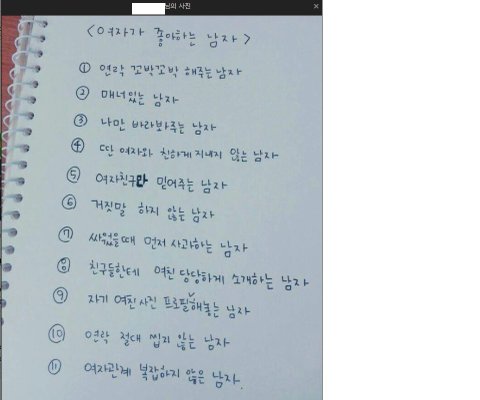 님의 사진
<여자가 좋아하는 남자>
① 연락 꼬박꼬박 해주는 남자
② 매너있는 남자
③ 나만 바라봐주는 남자
④ 딴 여자와 친하게 지내지 않는 남자
⑤ 여자친구말 믿어주는 남자
⑥ 거짓말 하지 않는 남자
⑦ 싸웠을때 먼저 사과하는 남자
⑧ 친구들한테 여친 당당하게 소개하는 남자
⑨ 자기 여친사진 프로필해놓는 남자
⑩ 연락 절대 씹지 않는 남자
⑪ 여자관계 복잡하지 않은 남자.